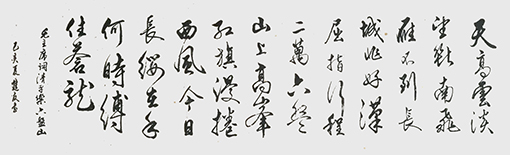 天高雲淡
望斷南飛
雁不到長
城非好漢
屈指行程
二萬六盤
山上高峰
紅旗漫捲
西風今日
長纓在手
何時縛
住蒼龍
毛主席詞清平樂六盤山
己亥夏